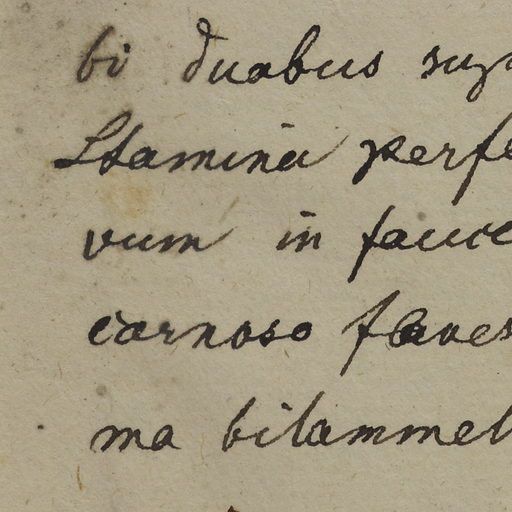 bi duabus sup
Stamina perfe
vum in fauce
carnoso flaves
ma bilammel